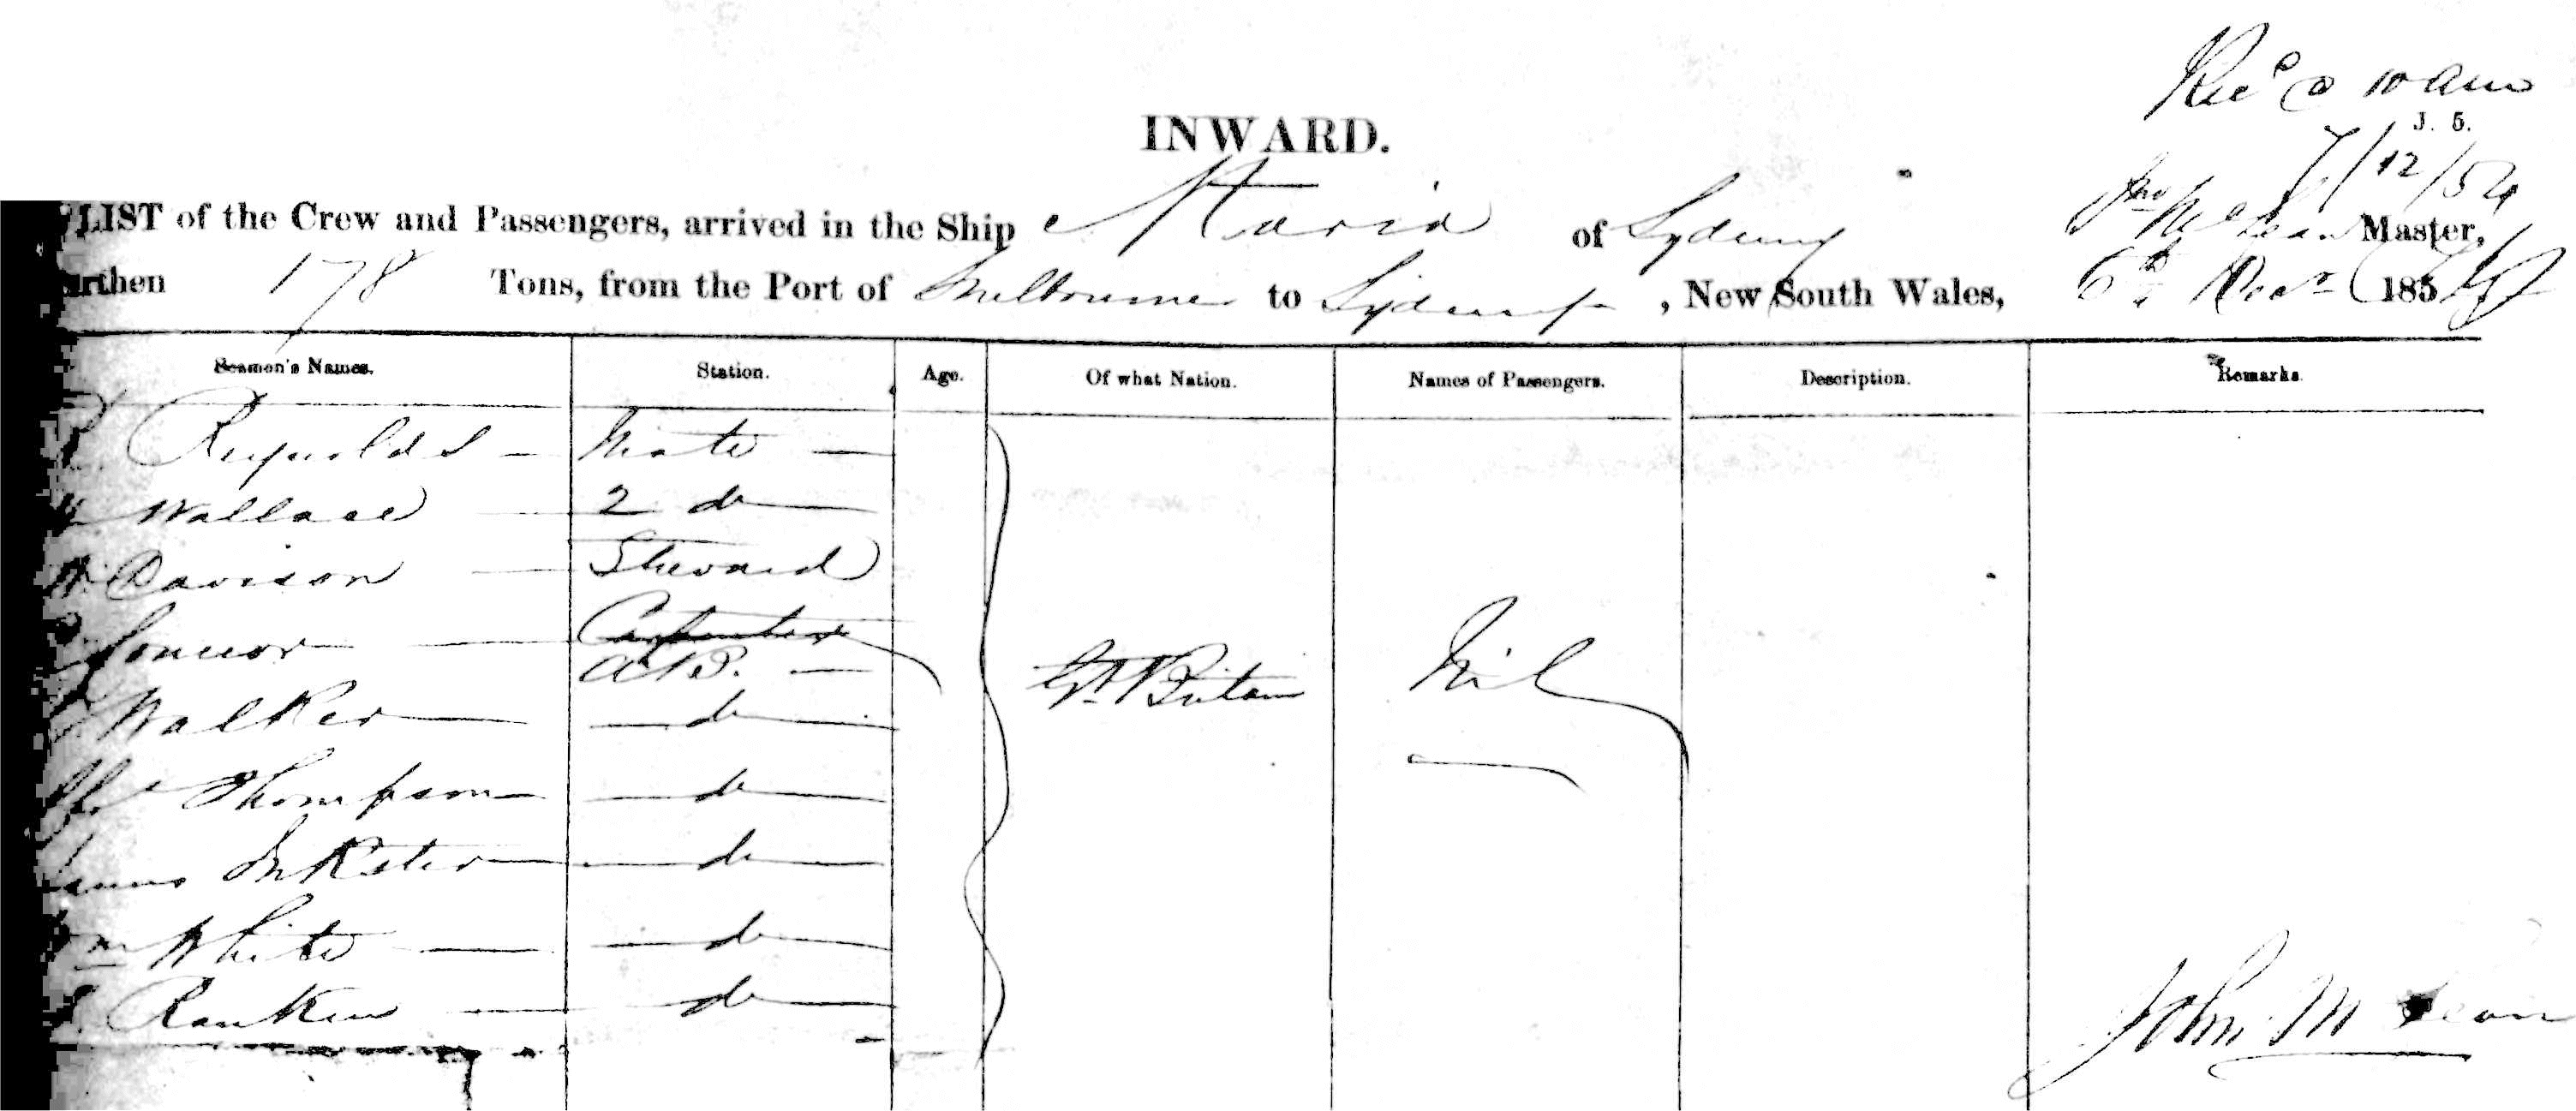 Rec'd 10 am
J. 5.
7/12/54
INWARD.
LIST of the Crew and Passengers, arrived in the Ship Maria of Sydney Jno McLean Master,
rthen 178 Tons, from the Port of Melbourne to Sydney, New South Wales, 6th Decr 185
Seamen's Names. Station. Age. Of what Nation. Names of Passengers. Description. Remarks.
Reynolds — Mate —
Wallace — 2 do —
W. Davison — Steward
Connor — Carpenter
A.B. —
Walker — do —
Gt Britain Nil
Thos Thompson — do —
Inkster — do —
Wm White — do —
Rankin — do —
John McLean